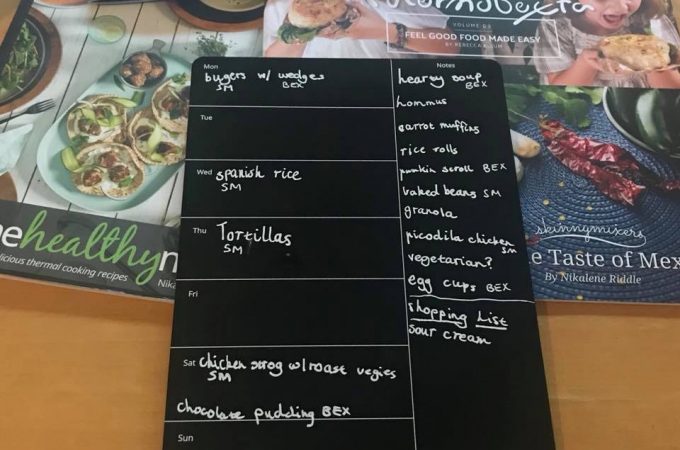 VOLUME 02
FEEL GOOD FOOD MADE EASY
healthy
delicious thermal cooking recipes
skinnymixers
e Taste of Mex
By Nikalene Riddle
Mon
bugers w/ wedges
SM BEX
Tue
Wed spanish rice
SM
Thu Tortillas
SM
Fri
Sat chicken strog w/ roast vegies
SM
chocolate pudding BEX
Sun
Notes
hearty soup
BEX
hommus
carrot muffins
rice rolls
pumkin scroll BEX
baked beans SM
granola
picodila chicken
SM
vegetarian?
egg cups BEX
shopping list
sour cream